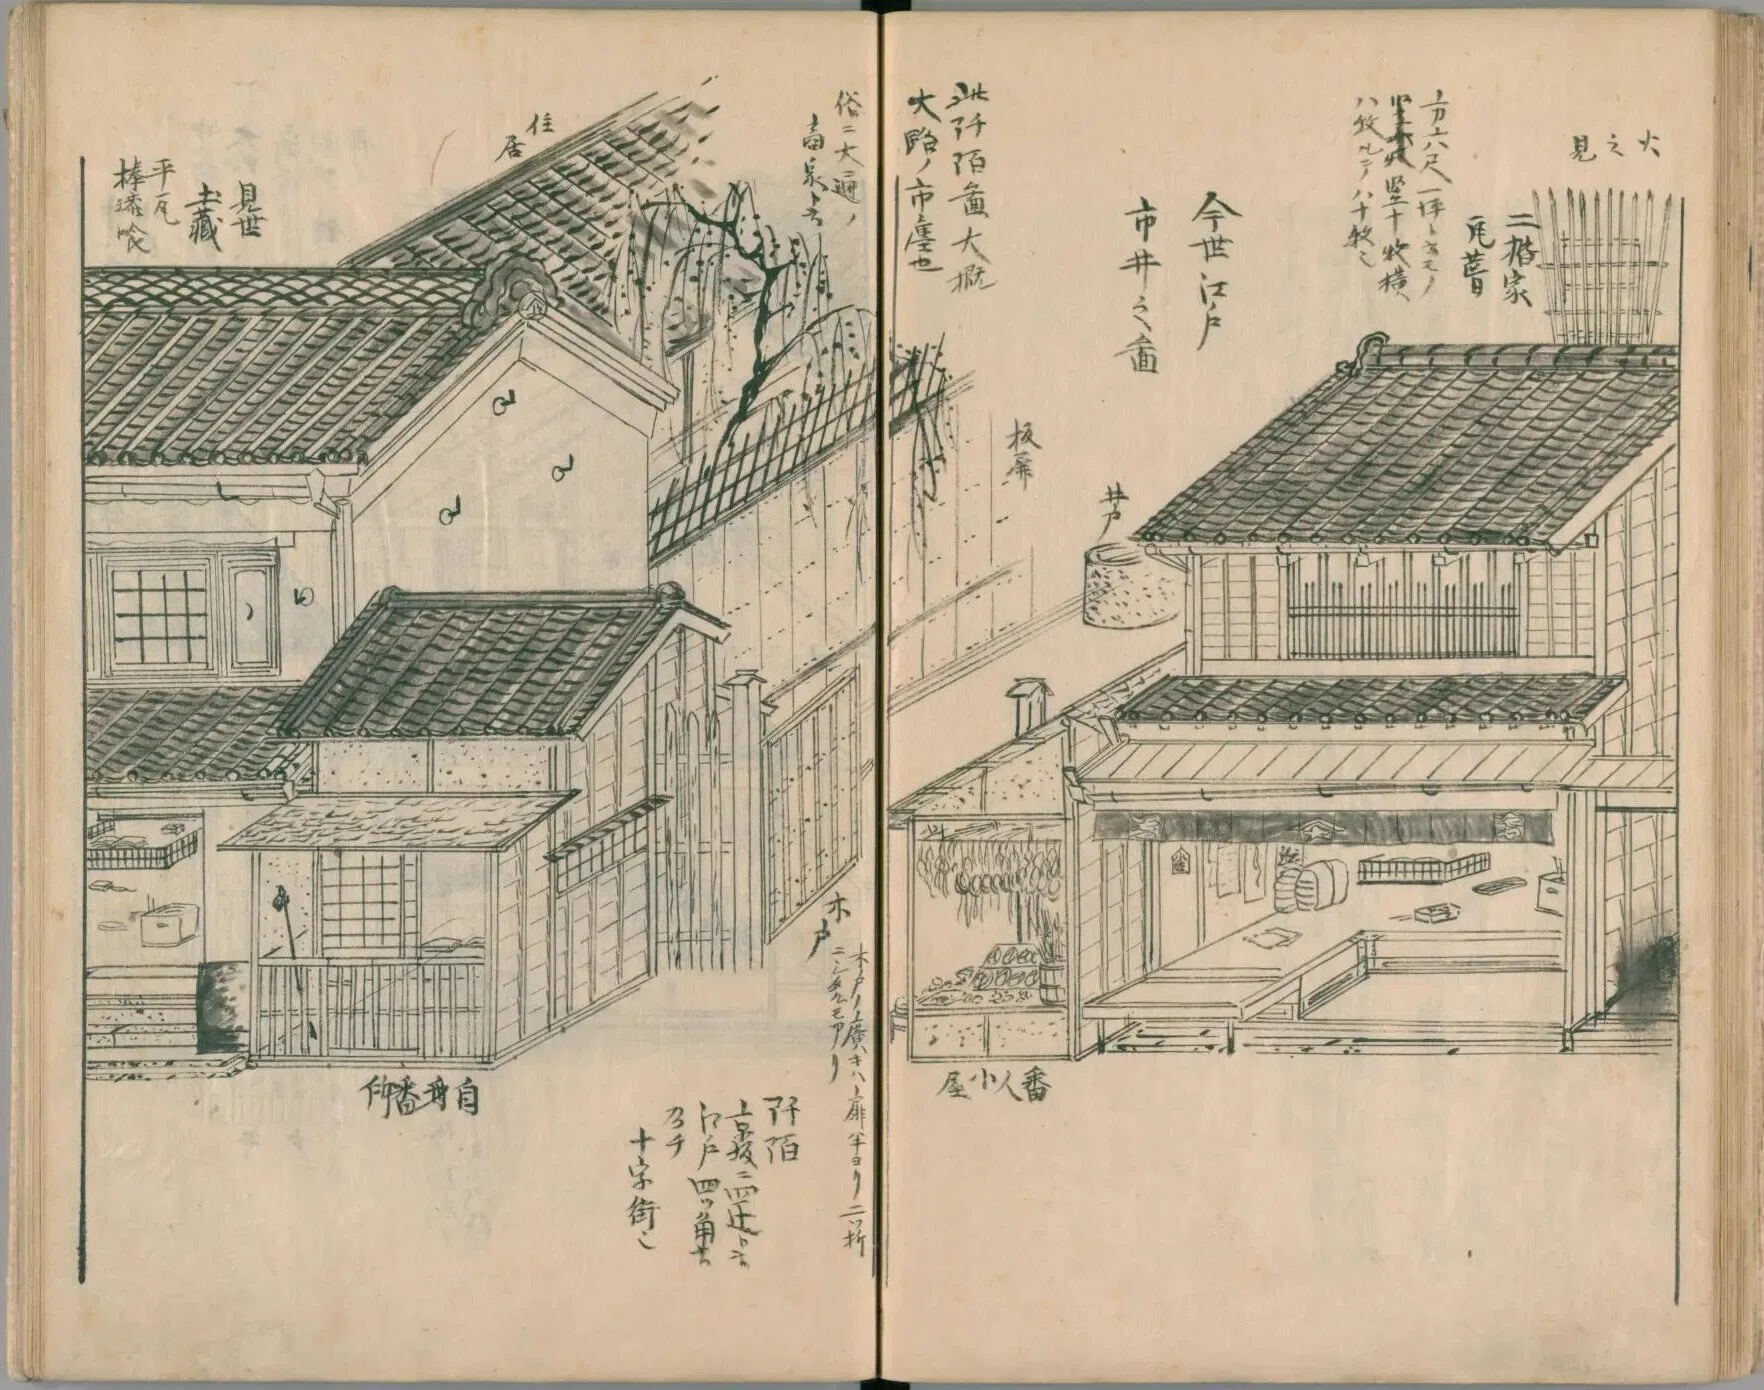 火之見
二階家
瓦葺
方六尺一坪ト云モノ
竪十枚横
八枚ルテノ八十枚也
今世江戸
市井之図
井戸
板屏
此阡陌図大概
大路ノ市塵也
番人小屋
俗ニ大通ノ
住居
見世
土蔵
平瓦
棒漆喰
木戸
木戸ノ広キハ扉半ヨリ二ツ折
ニシタルモアリ
自身番所
阡陌
京坂ニ四辻ト云
江戸四ツ角ト云
乃チ
十字街也